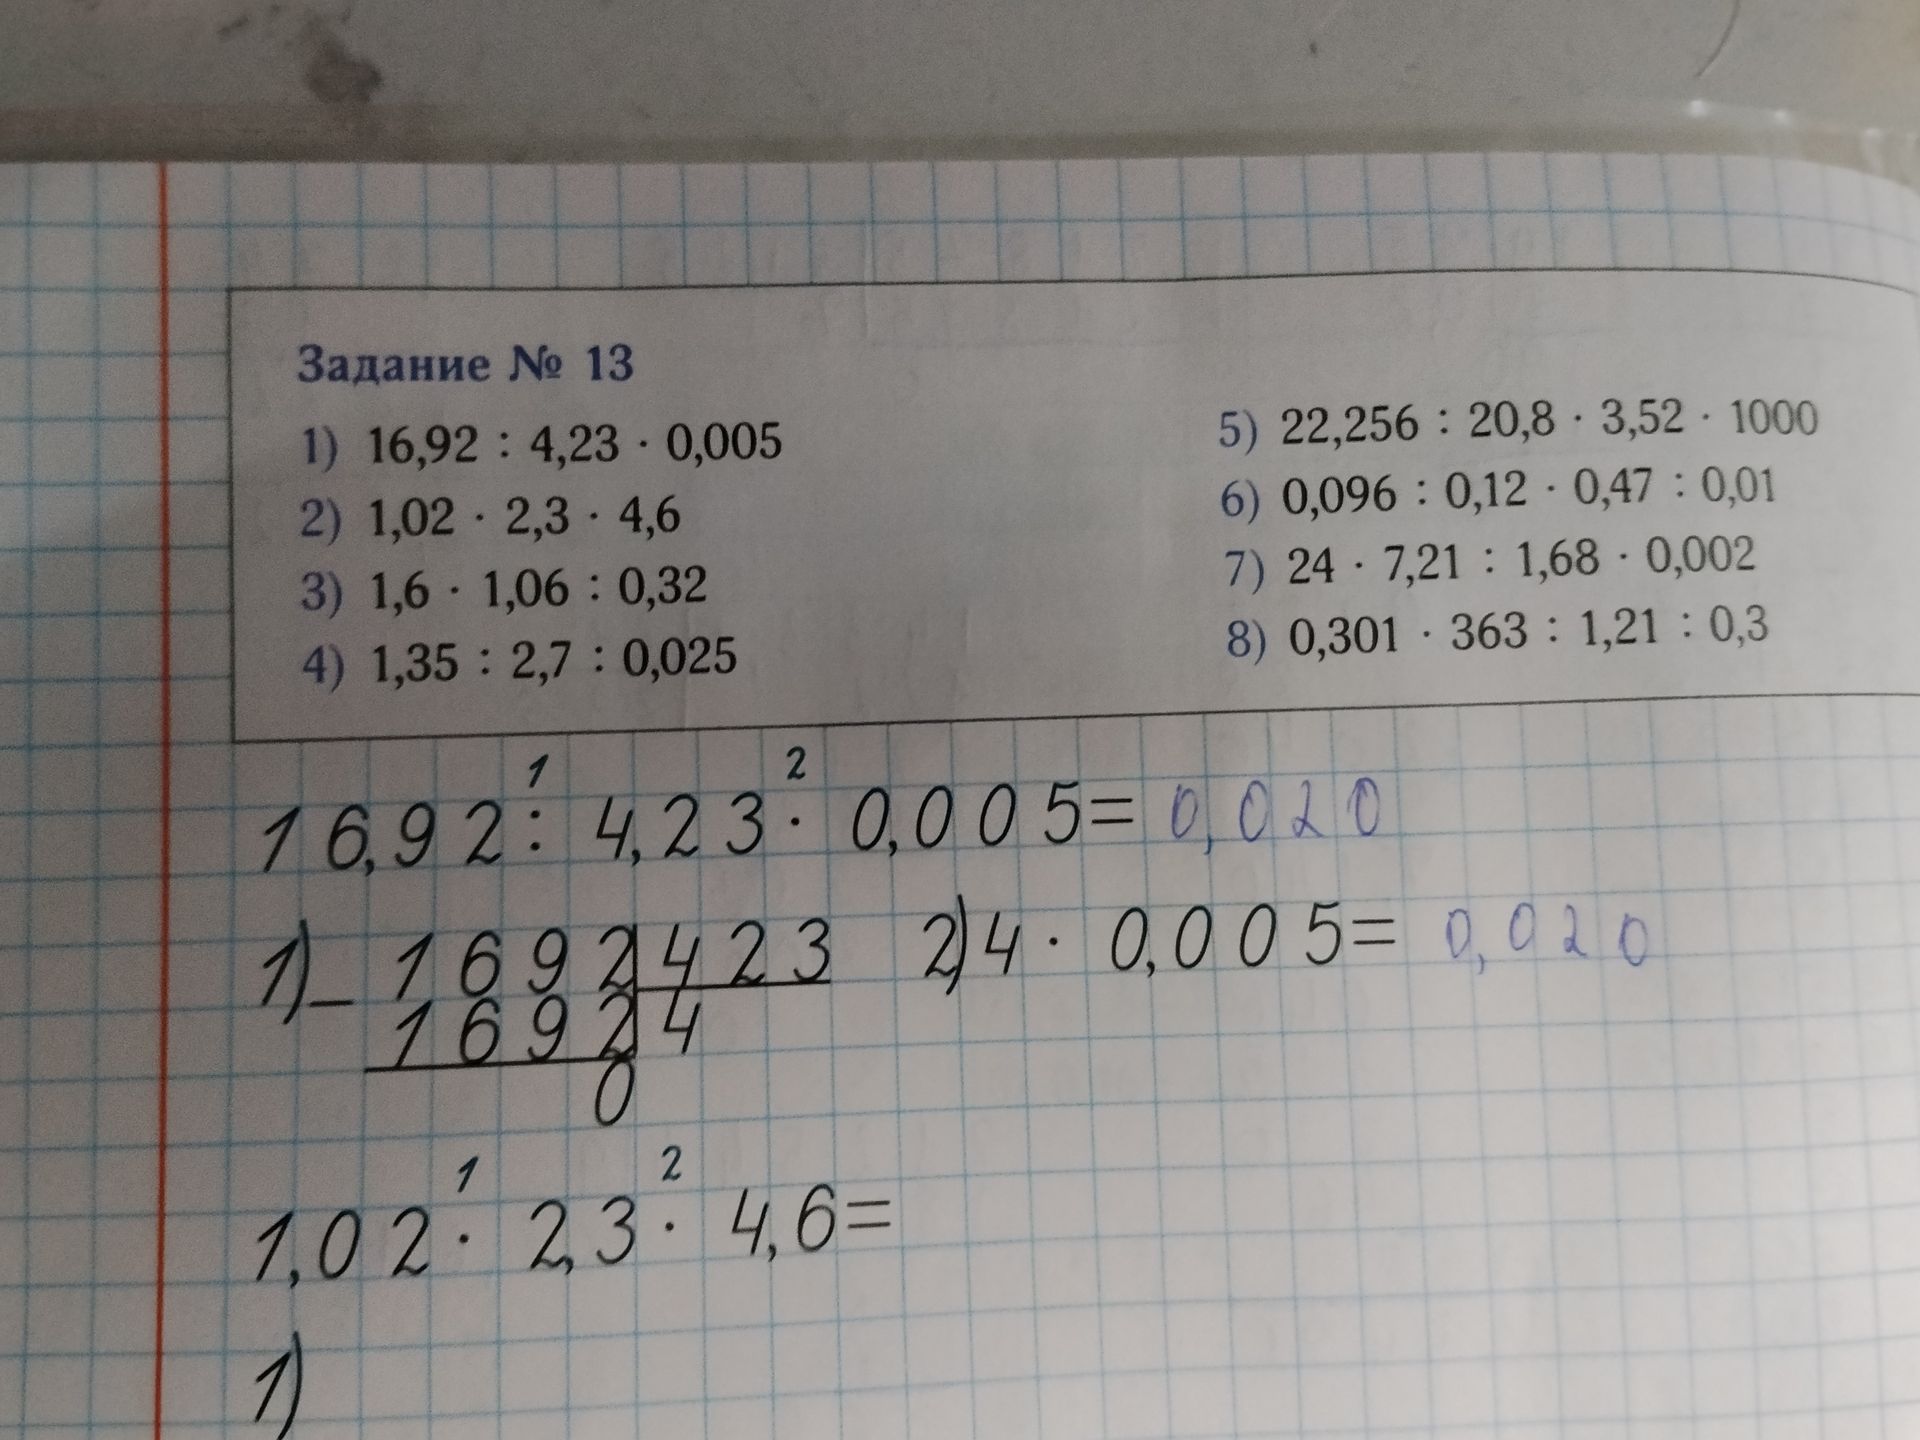 Задание № 13
1) 16,92 : 4,23 · 0,005
2) 1,02 · 2,3 · 4,6
3) 1,6 · 1,06 : 0,32
4) 1,35 : 2,7 : 0,025
5) 22,256 : 20,8 · 3,52 · 1000
6) 0,096 : 0,12 · 0,47 : 0,01
7) 24 · 7,21 : 1,68 · 0,002
8) 0,301 · 363 : 1,21 : 0,3
1 2
16,92 : 4,23 · 0,005 = 0,020
1) – 1692 423 2) 4 · 0,005 = 0,020
1692 4
0
1 2
1,02 · 2,3 · 4,6 =
1)